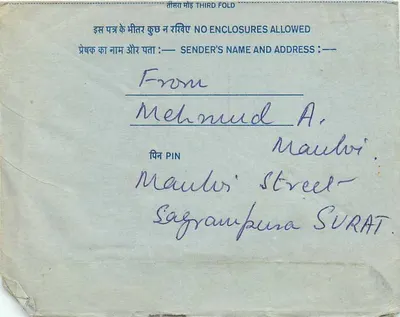 तीसरा मोड़ THIRD FOLD
इस पत्र के भीतर कुछ न रखिए NO ENCLOSURES ALLOWED
प्रेषक का नाम और पता :— SENDER'S NAME AND ADDRESS :—
From
Mehmud A.
Maulvi.
पिन PIN
Maulvi Street
Sagrampura SURAT.